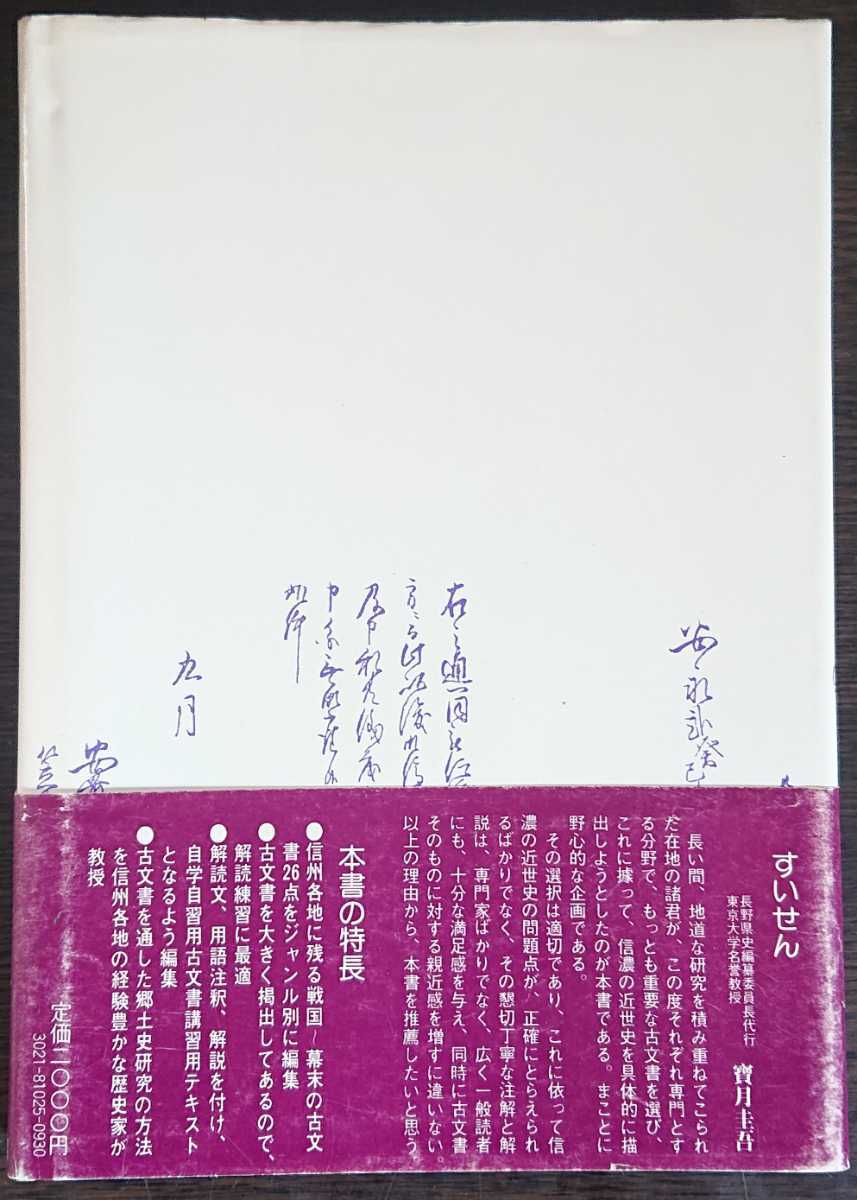 安永弐癸巳
九月
すいせん
長野県史編纂委員長代行
東京大学名誉教授
寶月圭吾
長い間、地道な研究を積み重ねてこられ
た在地の諸君が、この度それぞれ専門とす
る分野で、もっとも重要な古文書を選び、
これに據って、信濃の近世史を具体的に描
出しようとしたのが本書である。まことに
野心的な企画である。
その選択は適切であり、これに依って信
濃の近世史の問題点が、正確にとらえられ
るばかりでなく、その懇切丁寧な注解と解
説は、専門家ばかりでなく、広く一般読者
にも、十分な満足感を与え、同時に古文書
そのものに対する親近感を増すに違いない。
以上の理由から、本書を推薦したいと思う。
本書の特長
●信州各地に残る戦国～幕末の古文
書26点をジャンル別に編集
●古文書を大きく掲出してあるので、
解読練習に最適
●解読文、用語注釈、解説を付け、
自学自習用古文書講習用テキスト
となるよう編集
●古文書を通した郷土史研究の方法
を信州各地の経験豊かな歴史家が
教授
定価二〇〇〇円
3021-81025-0930